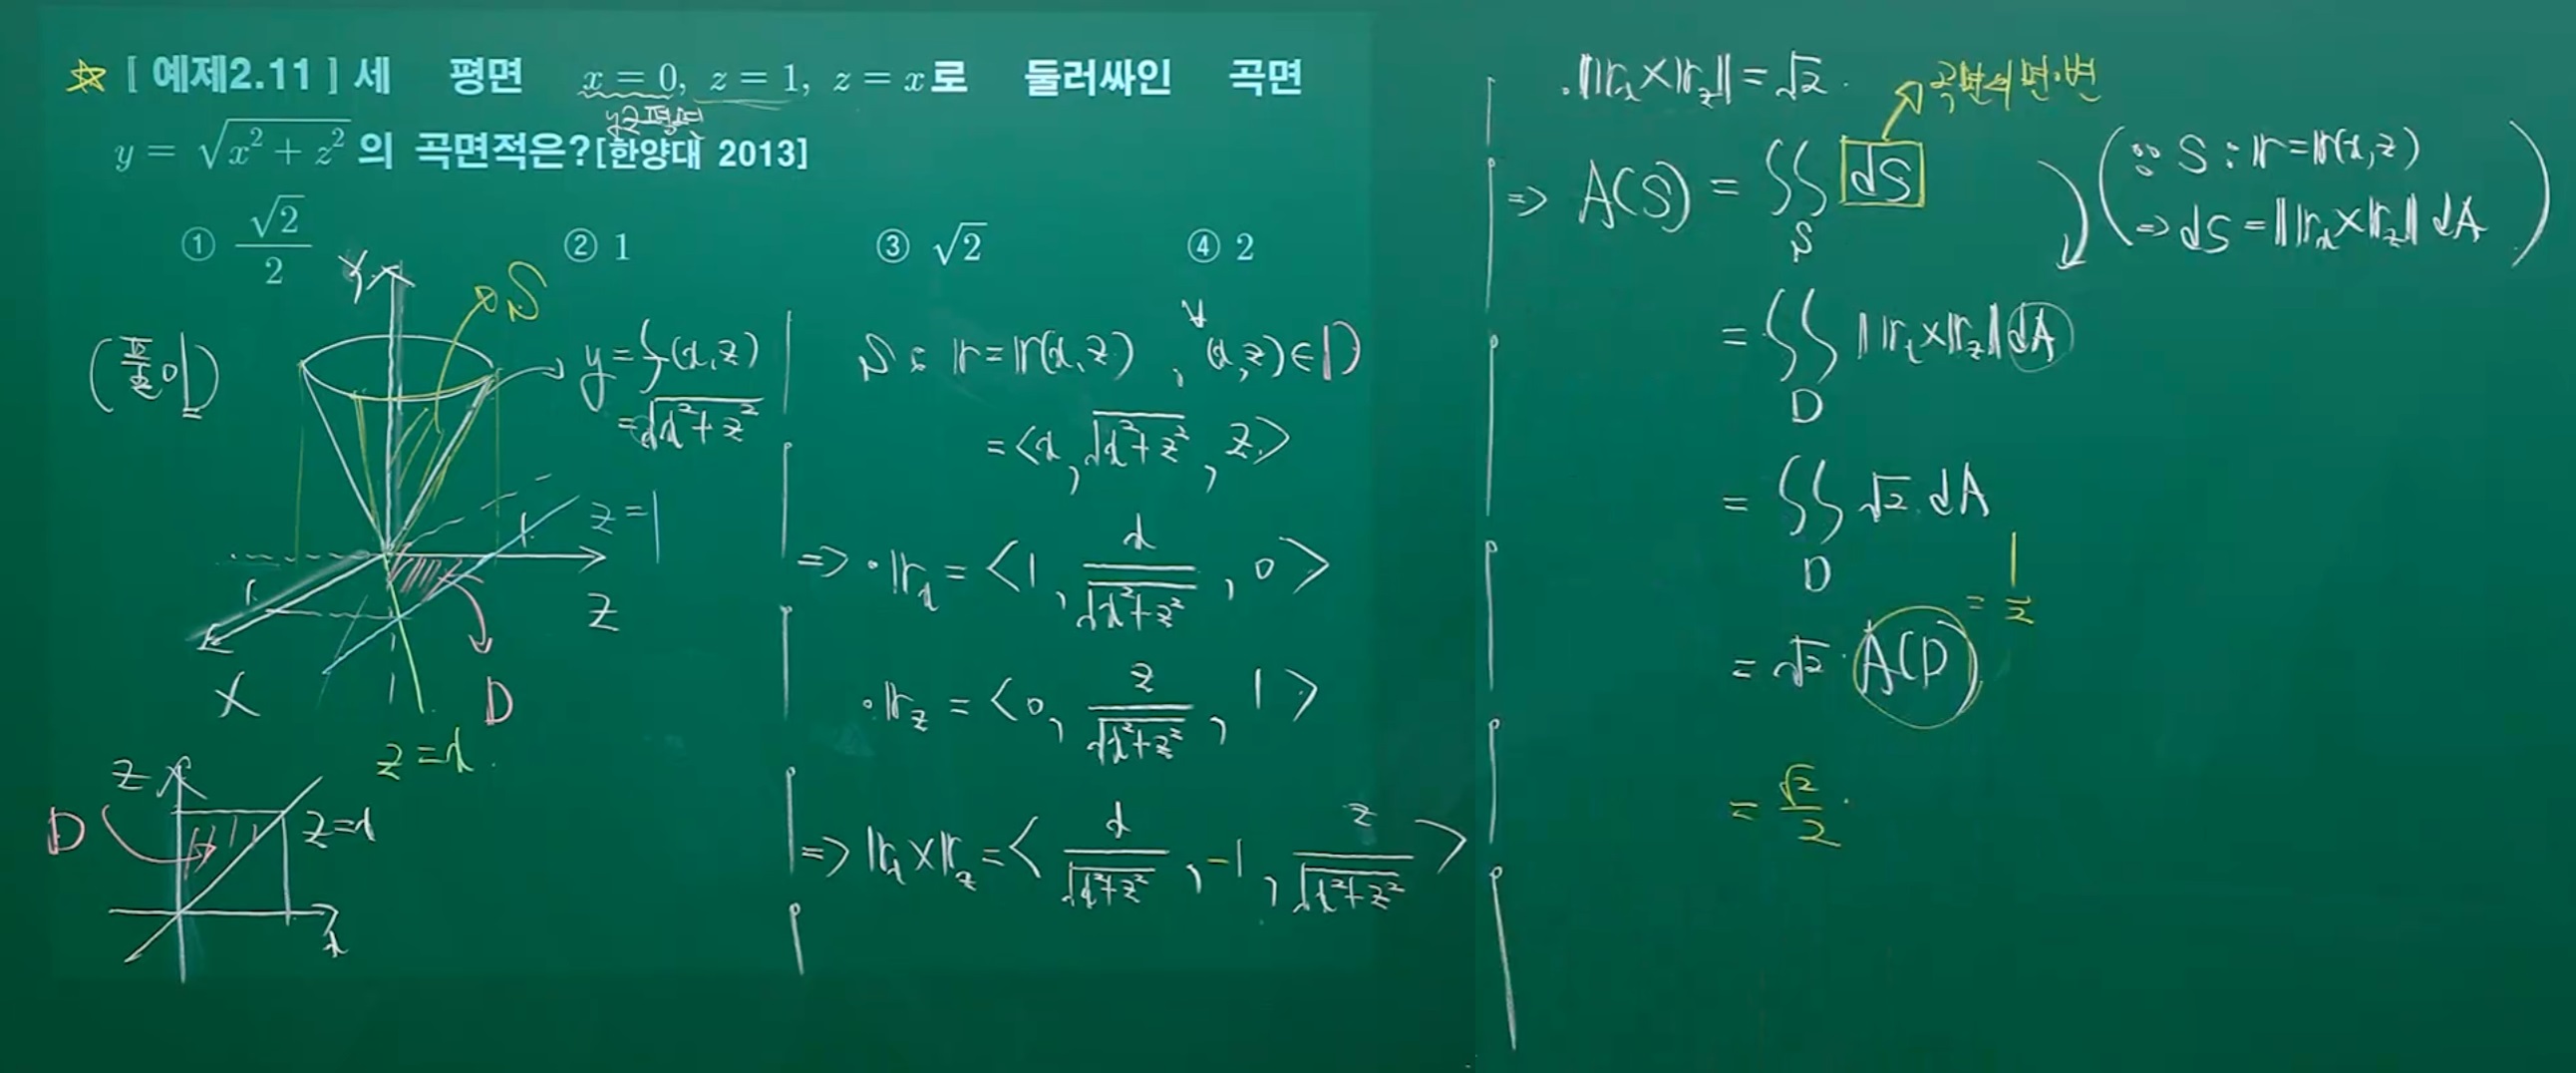 ☆ [ 예제2.11 ] 세 평면 x = 0, z = 1, z = x로 둘러싸인 곡면
yz평면
y = √(x² + z²) 의 곡면적은?[한양대 2013]
① √2/2 ② 1 ③ √2 ④ 2
(풀이)
Y
S
y = f(x,z)
= √(x²+z²)
z=1
1
1
1
Z
X
D
z=x
Z
D
z=x
x
S : r = r(x,z), ∀(x,z)∈D
= <x, √(x²+z²), z>
=> · r_x = <1, x/√(x²+z²), 0>
· r_z = <0, z/√(x²+z²), 1>
=> r_x × r_z = < x/√(x²+z²), -1, z/√(x²+z²) >
· ‖r_x × r_z‖ = √2.
곡면의 면·변
=> A(S) = ∬_S dS
(∵ S : r = r(x,z)
=> dS = ‖r_x × r_z‖ dA)
= ∬_D ‖r_x × r_z‖ dA
= ∬_D √2 dA
= √2 · A(D) = 1/2
= √2/2 .